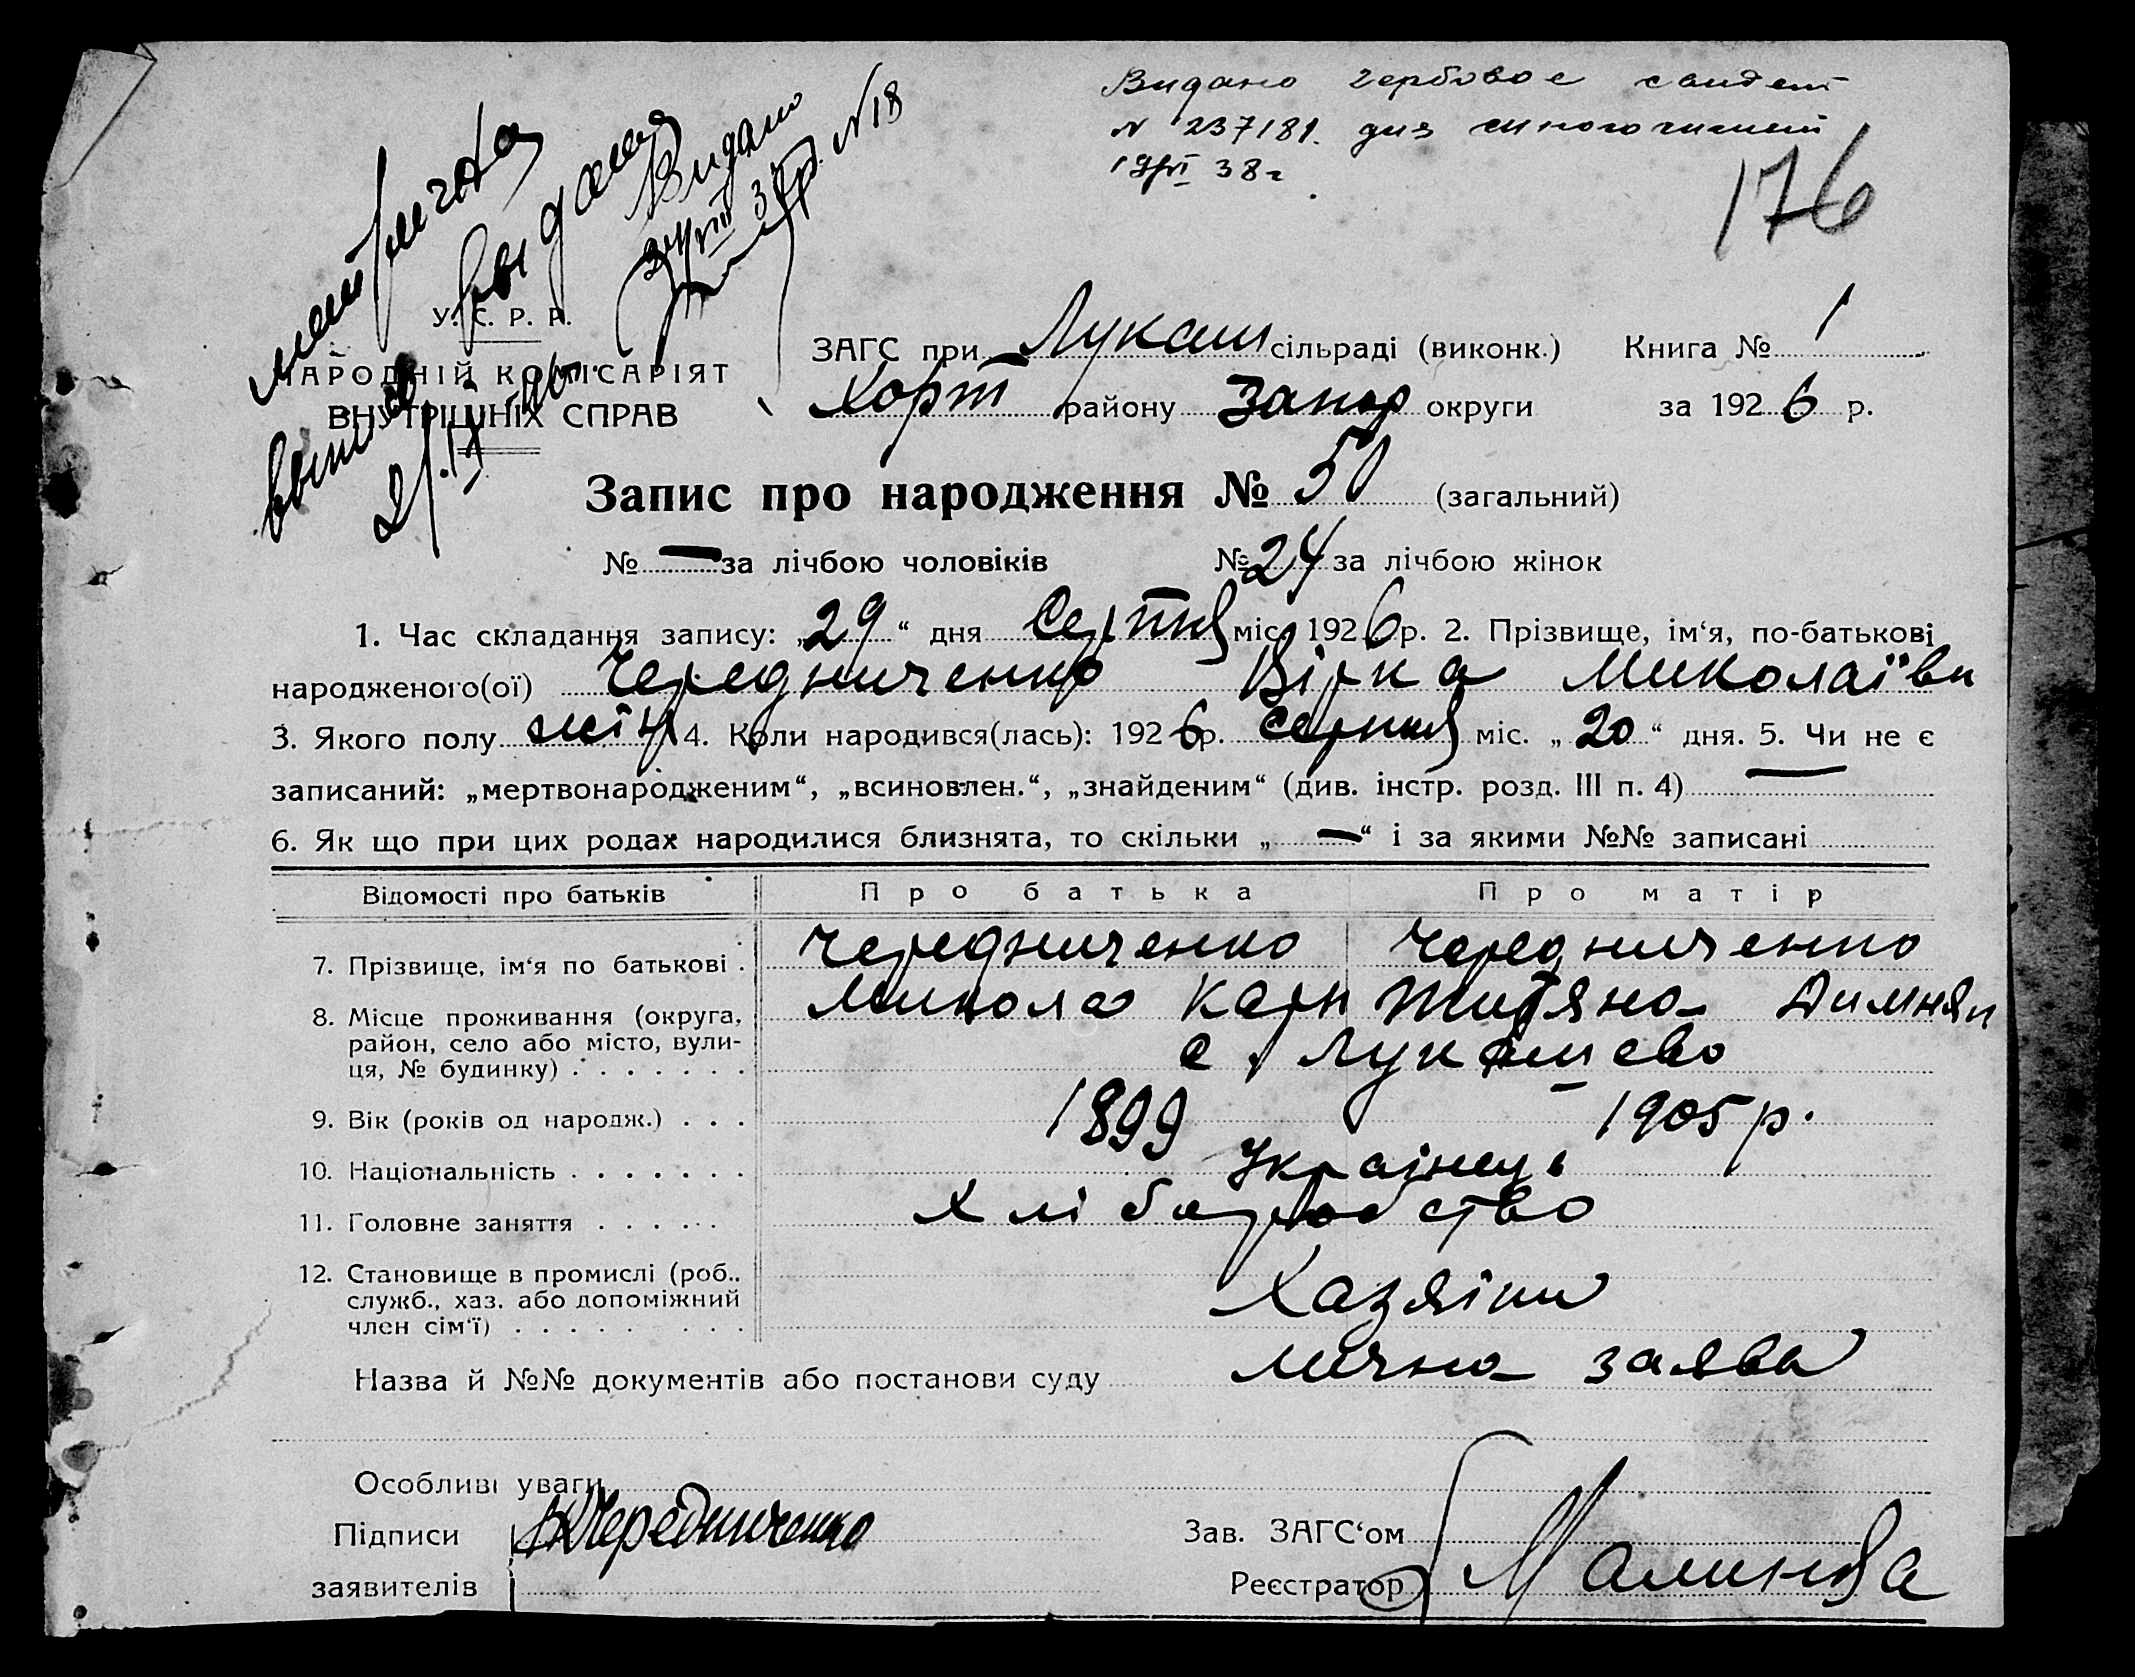 Видано гербовое
N 237181. для
38 г
176
метрична
выдана
Видано
N 18
У. С. Р. Р.
НАРОДНІЙ КОМІСАРІЯТ
ВНУТРІШНІХ СПРАВ
ЗАГС при Лукаш сільраді (виконк.) Книга № 1
Хорт району Запор округи за 1926 р.
Запис про народження № 50 (загальний)
№ — за лічбою чоловіків № 24 за лічбою жінок
1. Час складання запису: „29“ дня Серпня міс. 1926 р. 2. Прізвище, ім‘я, по-батькові
народженого(ої) Чередниченко Вірка Миколаївн
3. Якого полу жін 4. Коли народився(лась): 1926 р. Серпня міс. „20“ дня. 5. Чи не є
записаний: „мертвонародженим“, „всиновлен.“, „знайденим“ (див. інстр. розд. III п. 4) —
6. Як що при цих родах народилися близнята, то скільки „—“ і за якими №№ записані
Відомості про батьків Про батька Про матір
7. Прізвище, ім‘я по батькові . Чередниченко Чередниченко
Микола Карп Титяна
8. Місце проживання (округа,
район, село або місто, вули-
ця, № будинку) . . . . . . . с. Лукашево
9. Вік (років од народж.) . . . 1899 1905 р.
10. Національність . . . . . . . Українець
11. Головне заняття . . . . . . Хліборобство
12. Становище в промислі (роб.,
служб., хаз. або допоміжний
член сім‘ї) . . . . . . . . Хазяіни
Назва й №№ документів або постанови суду лична заява
Особливі уваги
Підписи Чередниченко Зав. ЗАГС‘ом
заявителів Реєстратор